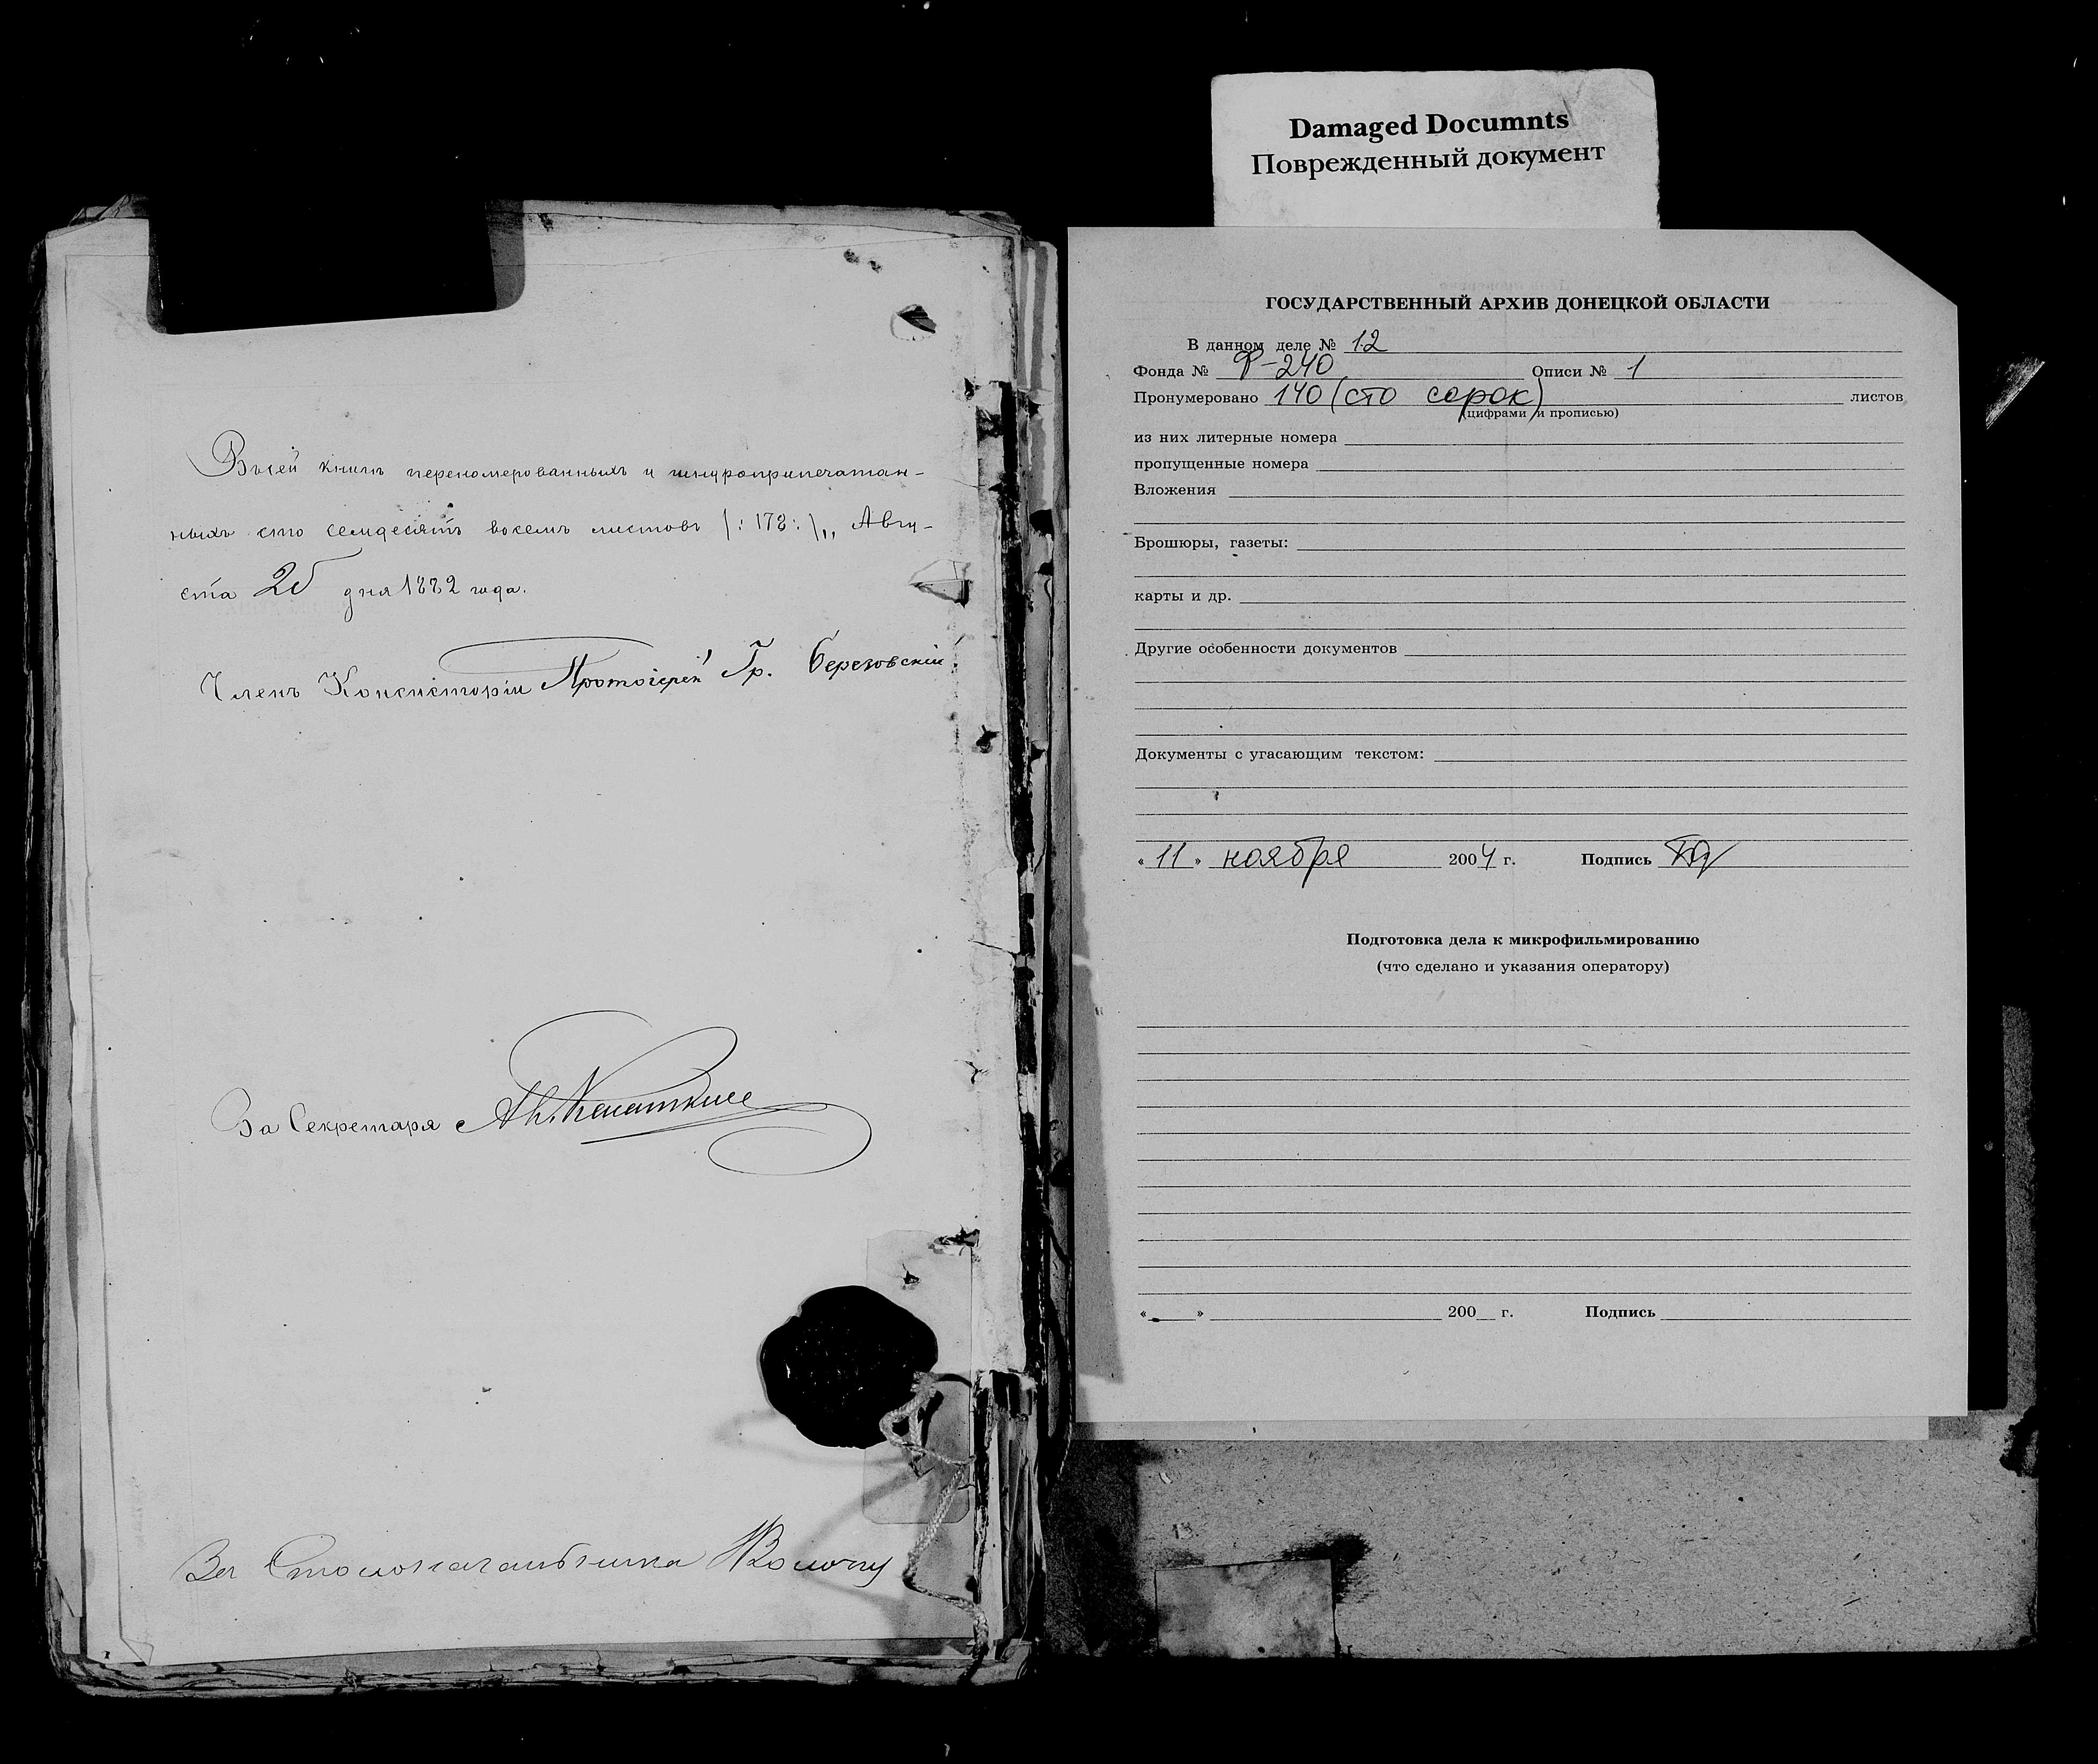 Въ сей книгѣ перенумерованныхъ и шнуроприпечатан-
ныхъ сто семдесятъ восемь листовъ /:178:/,, Авгу-
ста 26 дня 1882 года.
Членъ Консисторіи Протоіерей Гр. Березовскій
За Секретаря
За Столоначальника
Damaged Documnts
Поврежденный документ
ГОСУДАРСТВЕННЫЙ АРХИВ ДОНЕЦКОЙ ОБЛАСТИ
В данном деле № 12
Фонда № Ф-240 Описи № 1
Пронумеровано 140 (сто сорок) листов
(цифрами и прописью)
из них литерные номера
пропущенные номера
Вложения
Брошюры, газеты:
карты и др.
Другие особенности документов
Документы с угасающим текстом:
« 11 » ноября 2004 г. Подпись
Подготовка дела к микрофильмированию
(что сделано и указания оператору)
« » 200 г. Подпись